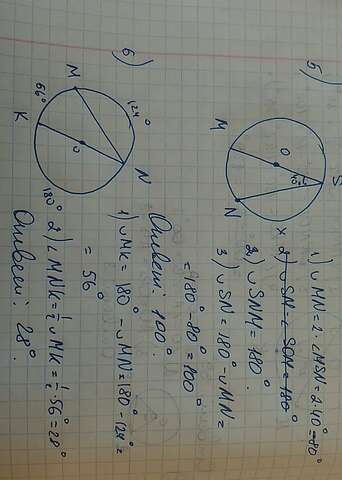 5)
S
M
O
N
40°
x
1) ∪MN = 2·∠MSN = 2·40° = 80°
2) ∪SN = ∠SON = 180°
2) ∪SNM = 180°.
3) ∪SN = 180° - ∪MN =
= 180° - 80° = 100°
Ответ: 100°.
6)
M
124°
56°
K
O
N
180°
1) ∪MK = 180° - ∪MN = 180 - 124° =
= 56°
2) ∠MNK = 1/2 ∪MK = 1/2 · 56° = 28°
Ответ: 28°.